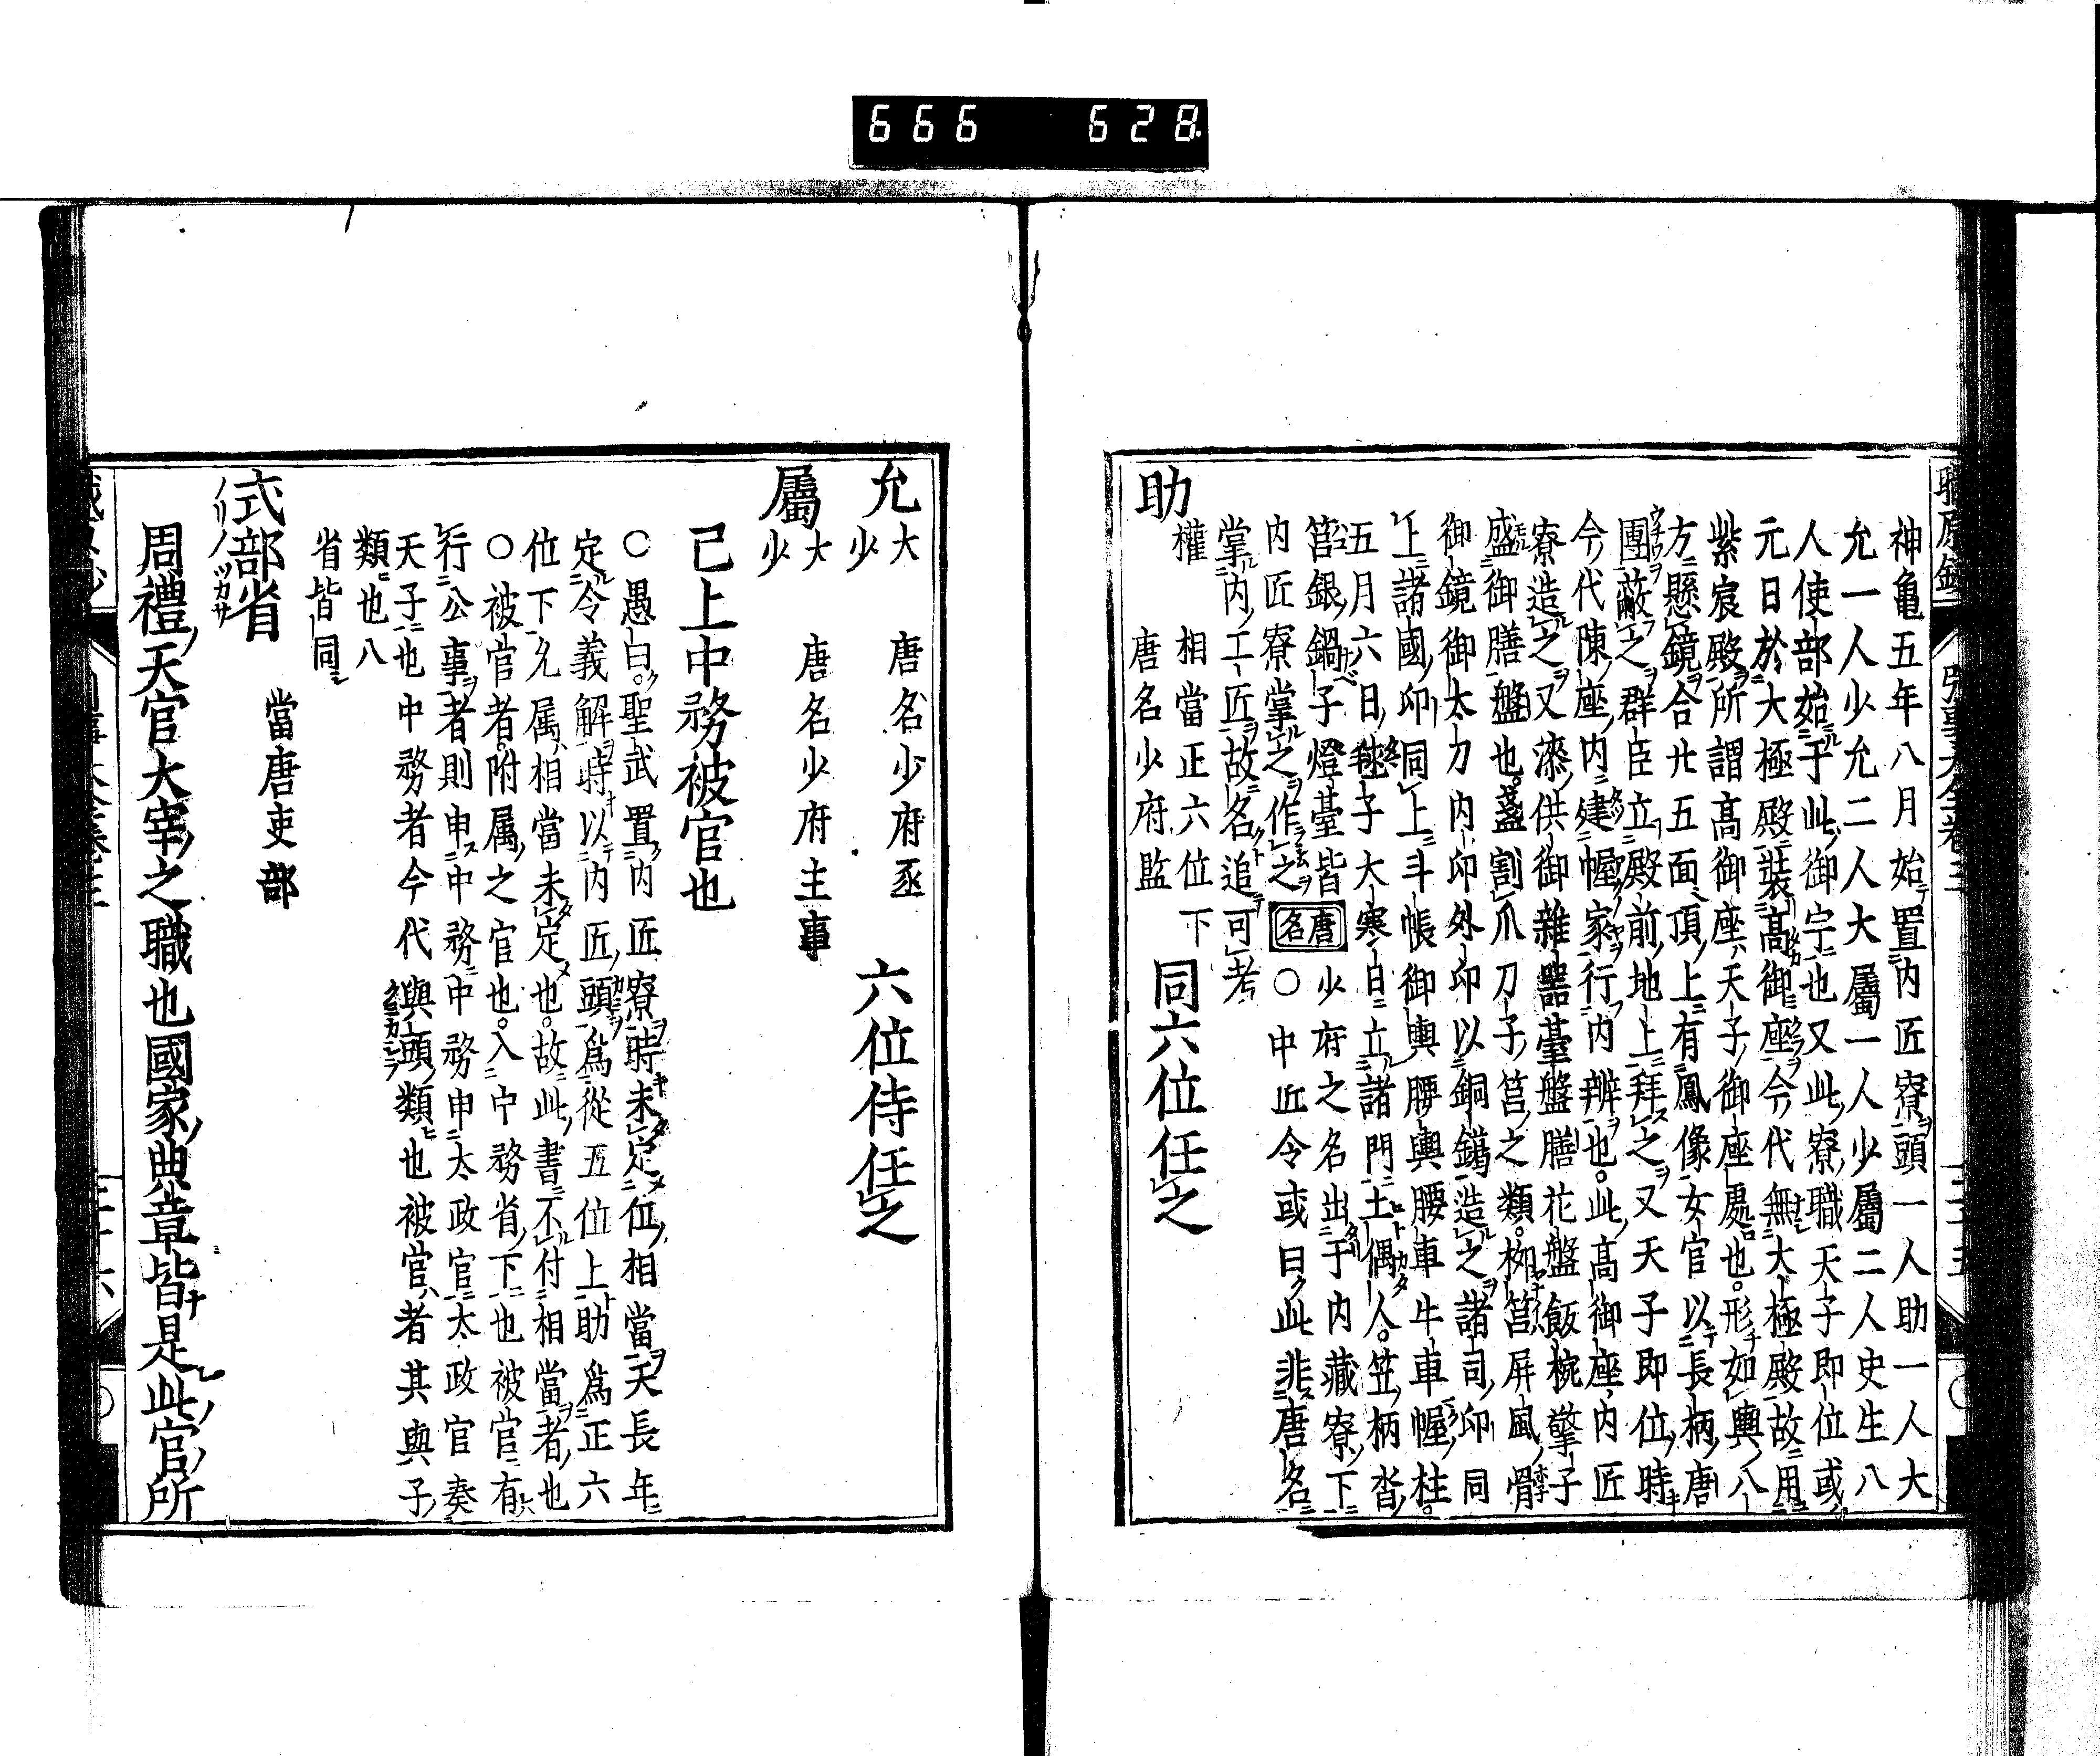 666 628
神亀五年八月始置内匠寮頭一人助一人大
允一人少允二人大屬一人少屬二人史生八
人使部始于此御宇也又此寮職天子即位或
元日於大極殿装高御座今代無大極殿故用
紫宸殿所謂高御座天子御座處也形如輿八
方懸鏡合廿五面頂上有鳳像女官以長柄唐
團蔽之群臣立殿前地上拜之又天子即位時
今代陳座内建幄家行内辨也此高御座内匠
寮造之又漆供御雜器臺盤膳花盤飯椀擎子
盛御膳盤也盞割爪刀子筥之類柳筥屏風骨
御鏡御太刀内印外印以銅鑄造之諸司印同
上諸國印同上斗帳御輿腰輿腰車牛車幄柱
五月六日毬子大寒日立諸門土偶人笠柄沓
筥銀鍋子燈臺皆
内匠寮掌之作之
唐名
少府之名出于内藏寮下
○中丘令或曰此非唐名
掌内工匠故名追可考
助
權
相當正六位下
唐名少府監
同六位任之
允
大
少
唐名少府丞
六位侍任之
屬
大
少
唐名少府主事
已上中務被官也
○愚白聖武置内匠寮時未定位相當天長年
定令義解時以内匠頭為從五位上助為正六
位下允属相當未定也故此書不付相當者也
○被官者附属之官也入中務省下也被官有
行公事者則申中務中務申太政官太政官奏
天子也中務者今代與頭類也被官者其與子
類也八
省皆同
式部省
ノリノツカサ
當唐吏部
周禮天官大宰之職也國家典章皆是此官所